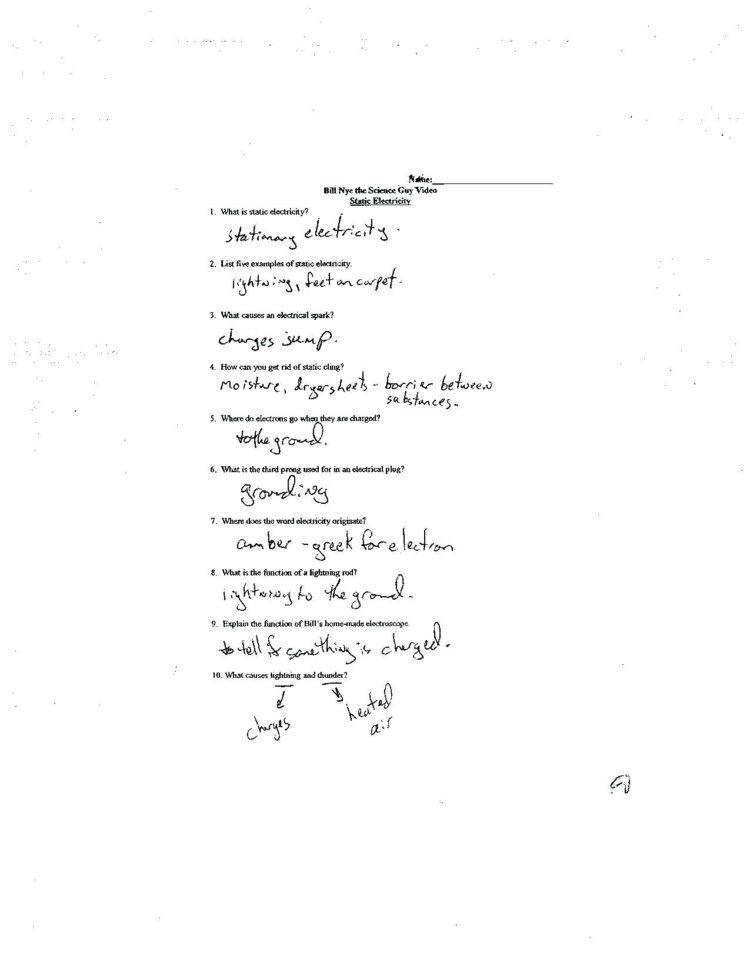 Name:
Bill Nye the Science Guy Video
Static Electricity
1. What is static electricity?
stationary electricity.
2. List five examples of static electricity.
lightning, feet on carpet.
3. What causes an electrical spark?
charges jump.
4. How can you get rid of static cling?
Moisture, dryer sheets - barrier between
substances.
5. Where do electrons go when they are charged?
to the ground.
6. What is the third prong used for in an electrical plug?
grounding
7. Where does the word electricity originate?
amber - greek for electron
8. What is the function of a lightning rod?
lightning to the ground.
9. Explain the function of Bill's home-made electroscope.
to tell if something is charged.
10. What causes lightning and thunder?
charges heated
air